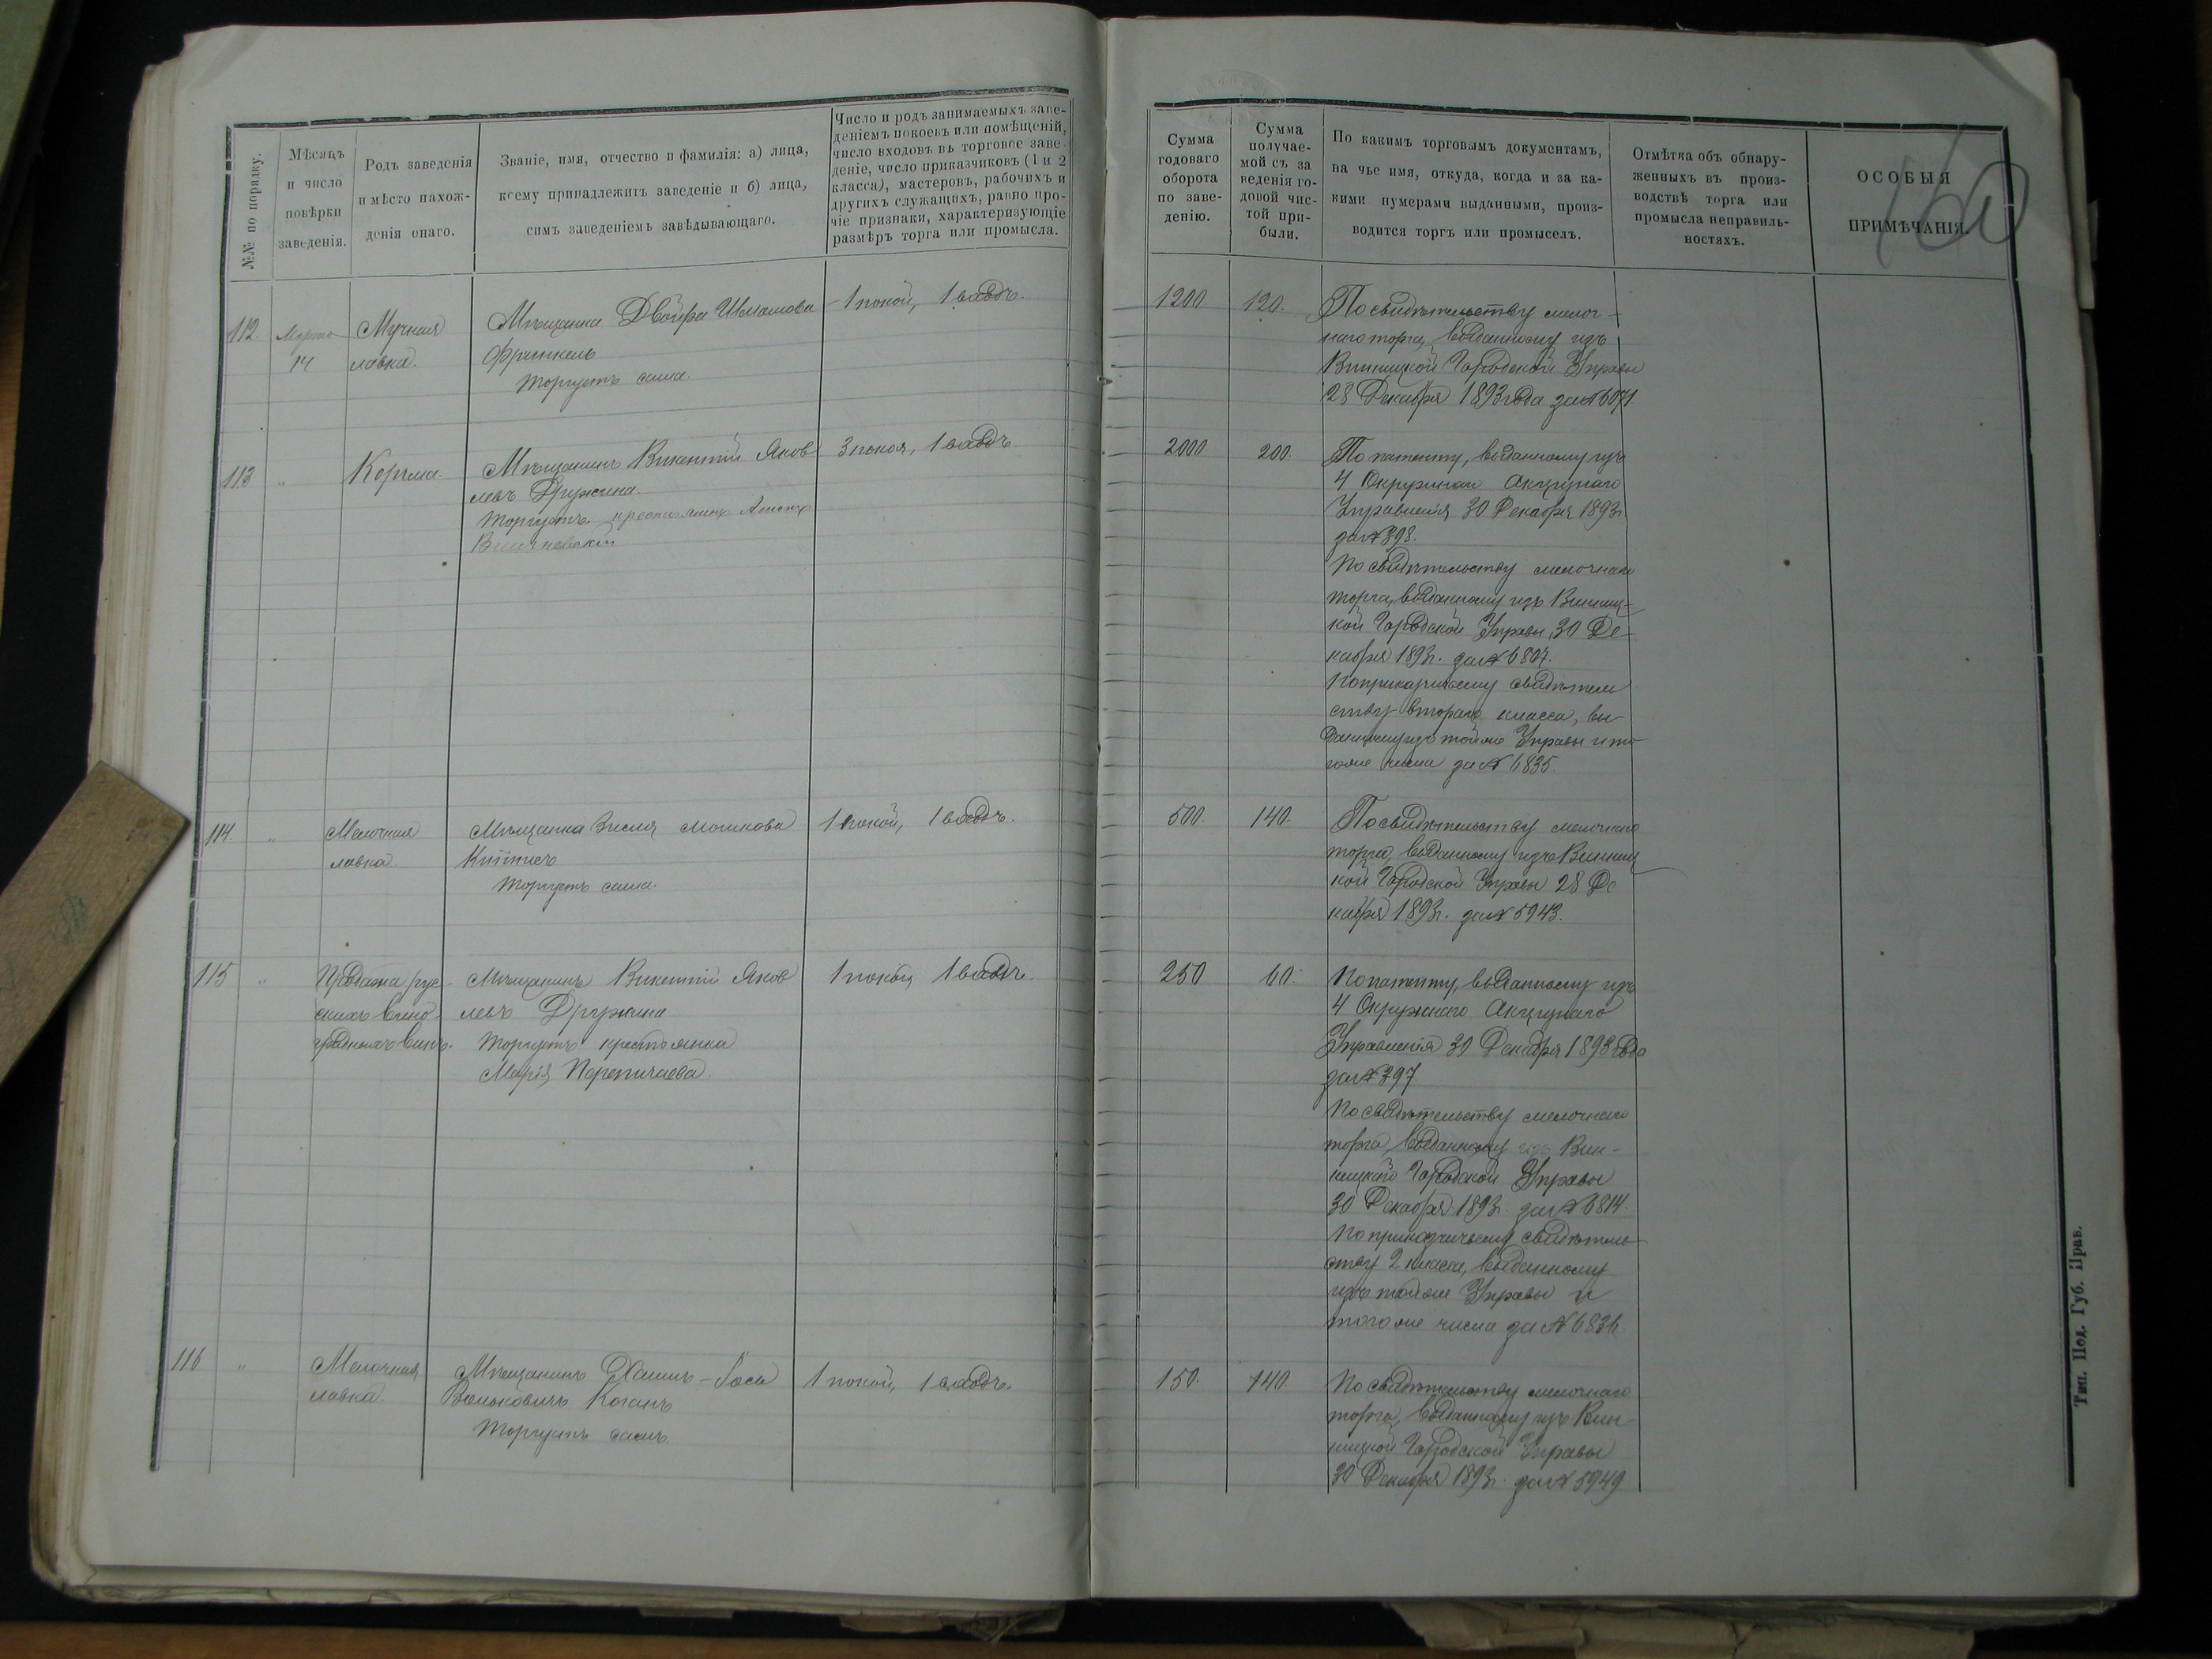 №№ по порядку.
Мѣсяцъ
и число
повѣрки
заведенія.
Родъ заведенія
и мѣсто нахож-
денія онаго.
Званіе, имя, отчество и фамилія: а) лица,
коему принадлежитъ заведеніе и б) лица,
симъ заведеніемъ завѣдывающаго.
Число и родъ занимаемыхъ заве-
деніемъ покоевъ или помѣщеній,
число входовъ въ торговое заве-
деніе, число приказчиковъ (1 и 2
класса), мастеровъ, рабочихъ и
другихъ служащихъ, равно про-
чіе признаки, характеризующіе
размѣръ торга или промысла.
Сумма
годоваго
оборота
по заве-
денію.
Сумма
получае-
мой съ за
веденія го-
довой чис-
той при-
были.
По какимъ торговымъ документамъ,
на чье имя, откуда, когда и за ка-
кими нумерами выданными, произ-
водится торгъ или промыселъ.
Отмѣтка объ обнару-
женныхъ въ произ-
водствѣ торга или
промысла неправиль-
ностяхъ.
ОСОБЫЯ
ПРИМѢЧАНІЯ.
160
112. Марта
14
Мучная
лавка.
Мѣщанка Двойра Шлемова
Френкель
Торгуетъ сама.
1 покой, 1 входъ.
1200. 120.
По свидѣтельству мелоч-
наго торга, выданному изъ
Винницкой Городской Управы
28 Декабря 1893 года за № 6071
113 " Корчма.
Мѣщанинъ Викентій Яков
левъ Дружина.
Торгуетъ крестьянинъ Антонъ
Вишневскій
3 покоя, 1 входъ.
2000. 200.
По патенту, выданному изъ
4 Окружнаго Акцизнаго
Управленія 30 Декабря 1893г
за № 398.
По свидѣтельству мелочнаго
торга, выданному изъ Винниц-
кой Городской Управы, 30 Де-
кабря 1893г. за № 6807.
По приказчичьему свидѣтель
ству втораго класса, вы
данному изъ тойже Управы и то
гоже числа за № 6835.
114. " Мелочная
лавка.
Мѣщанка Зисля Мошкова
Торгуетъ сама.
1 покой, 1 входъ.
500. 140.
По свидѣтельству мелочнаго
торга, выданному изъ Винниц
кой Городской Управы 28 Де
кабря 1893г. за № 5943.
115 " Продажа рус-
скихъ вино-
градныхъ винъ.
Мѣщанинъ Викентій Яков
левъ Дружина
Торгуетъ крестьянка
Марія
1 покой, 1 входъ.
250 60.
По патенту, выданному изъ
4 Окружнаго Акцизнаго
Управленія 30 Декабря 1893 года
за № 397.
По свидѣтельству мелочнаго
торга, выданному изъ Вин-
ницкой Городской Управы
30 Декабря 1893г. за № 6814.
По приказчичьему свидѣтель-
ству 2 класса, выданному
изъ тойже Управы и
того же числа за № 6836.
116 " Мелочная
лавка.
Мѣщанинъ Хаимъ-Іось
Вольковичъ Коганъ
Торгуетъ самъ.
1 покой, 1 входъ.
150. 140.
По свидѣтельству мелочнаго
торга, выданному изъ Вин
ницкой Городской Управы
30 Декабря 1893г. за № 5949
Тип. Под. Губ. Прав.